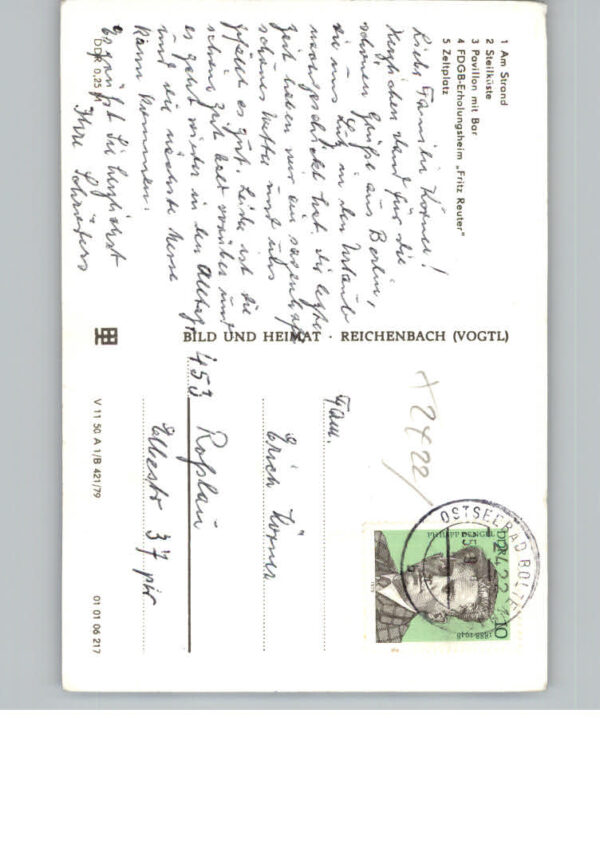 1 Am Strand
2 Steilküste
3 Pavillon mit Bar
4 FDGB-Erholungsheim „Fritz Reuter"
5 Zeltplatz
Liebe Familie Körner!
Herzlichen Dank für die
schönen Grüße aus Berlin,
die uns in den Urlaub
nachgeschickt hat. Die letzte
Zeit haben wir ein sagenhaft
schönes Wetter und uns
gefällt es gut. Leider ist die
schöne Zeit bald vorüber und
es geht wieder in den Alltag
und die nächste Messe
kann kommen.
Es grüßt Sie herzlichst
Ihre
DDR 0,25 M
BILD UND HEIMAT · REICHENBACH (VOGTL)
V 11 50 A 1/B 421/79
01 01 06 217
+ 2422
Fam.
Erich Körner
453 Roßlau
Elbestr 37 ptr
OSTSEEBAD BOLTEN
2422
PHILIPP DENGEL
DDR
10
1888-1948